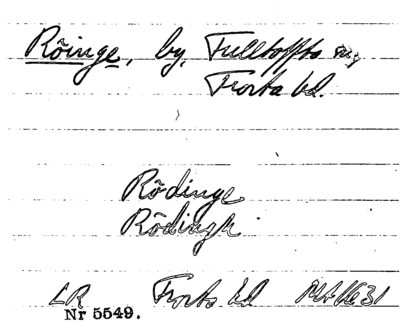 Röinge, by, Fulltofta sn,
Frosta hd.
Rödinge
Rödingh
LR Frosta hd 1631
Nr 5549.